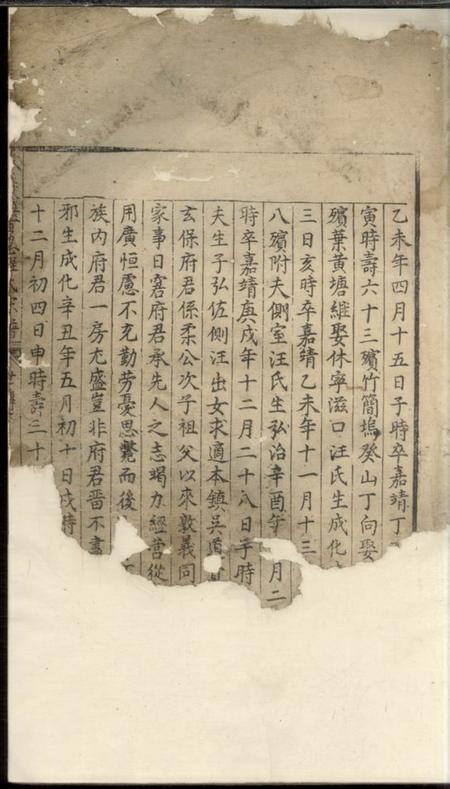 乙未年四月十五日子時卒嘉靖丁
寅時壽六十三殯竹簡塢癸山丁向娶
殯葉黃塘繼娶休寧滋口汪氏生成化
三日亥時卒嘉靖乙未年十一月十三
八殯附夫側室汪氏生弘治辛酉年 月二
時卒嘉靖庚戌年十二月二十八日子時
夫生子弘佐側汪出女求適本鎮吳道
玄保府君係柔公次子祖父以來敦義同
家事日窘府君承先人之志竭力經營從
用廣恒慮不充勤勞憂思斃而後
族內府君一房尤盛豈非府君嗇不盡
邪生成化辛丑年五月初十日戌時
十二月初四日申時壽三十
氏宗譜